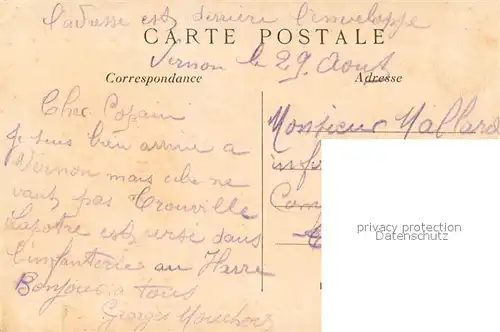 l'adresse est derriere l'enveloppe
CARTE POSTALE
Vernon le 29 Aout
Correspondance
Adresse
Cher Copain
Je suis bien arrive a
Vernon mais cela ne
vant pas Trouville
Lapotre est versé dans
l'infanterie au Havre
Bonjour a tous
Georges
Monsieur Mallard
privacy protection
Datenschutz